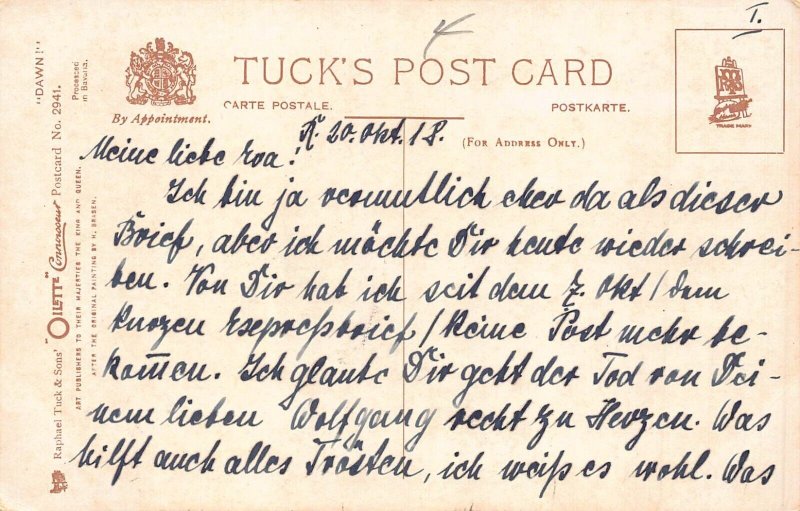 I.
4
TUCK'S POST CARD
CARTE POSTALE.
POSTKARTE.
By Appointment.
(FOR ADDRESS ONLY.)
TRADE MARK
"DAWN!"
Processed
in Bavaria.
Raphael Tuck & Sons' "OILETTE" Connoisseur Postcard No. 2941.
ART PUBLISHERS TO THEIR MAJESTIES THE KING AND QUEEN.
AFTER THE ORIGINAL PAINTING BY H. BRISEN.
K. 20. Okt. 18.
Meine liebe Eva!
Ich bin ja vermutlich eher da als dieser
Brief, aber ich möchte Dir heute wieder schrei-
ben. Von Dir hab ich seit dem 7. Okt / dem
kurzen Expreßbrief / keine Post mehr be-
kom̄en. Ich glaube Dir geht der Tod von Dei-
nem lieben Wolfgang recht zu Herzen. Was
hilft auch alles Trösten, ich weiß es wohl. Was